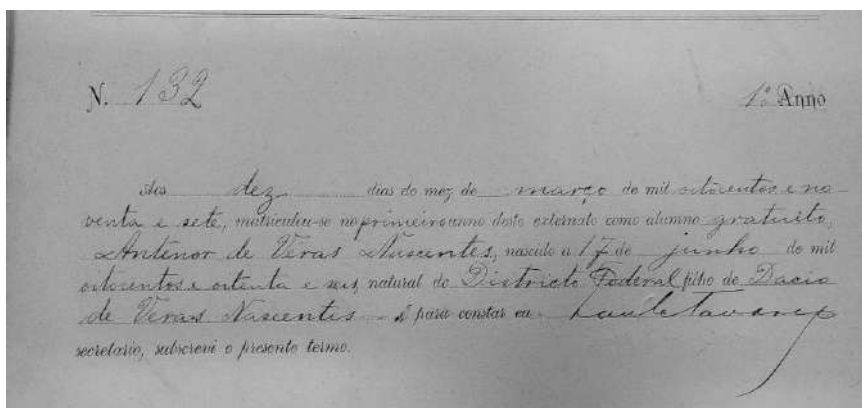 N. 132 1º Anno
Aos dez dias do mez de março de mil oitocentos e no-
venta e sete, matriculou-se no primeiro anno deste externato como alumno gratuito,
Antenor de Véras Nascentes, nascido a 17 de junho de mil
oitocentos e oitenta e seis, natural do Districto Federal filho de Dacio
de Veras Nascentes — E para constar eu Paulo Tavares
secretario, subscrevi o presente termo.